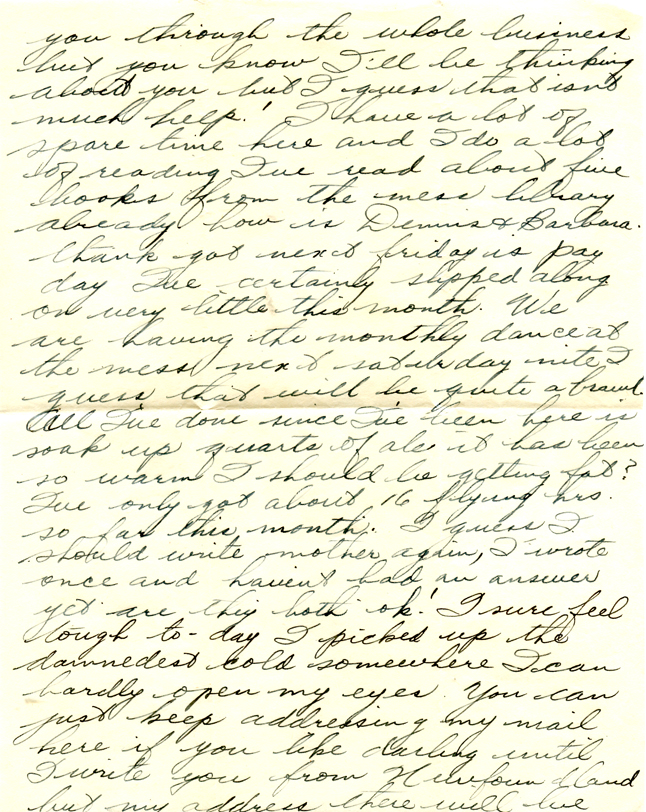 you through the whole business
but you know I'll be thinking
about you but I guess that isn't
much help! I have a lot of
spare time here and I do a lot
of reading I've read about five
books from the mess library
already how is Dennis & Barbara.
thank got next friday is pay
day I've certainly slipped along
on very little this month. We
are having the monthly dance at
the mess next saturday nite I
guess that will be quite a brawl.
All I've done since I've been here is
soak up quarts of ale it has been
so warm I should be getting fat?
I've only got about 16 flying hrs.
so far this month. I guess I
should write mother again, I wrote
once and havent had an answer
yet are they both ok! I sure feel
tough to-day I picked up the
damnedest cold somewhere I can
hardly open my eyes. You can
just keep addressing my mail
here if you like darling until
I write you from Newfoundland
but my address there will be